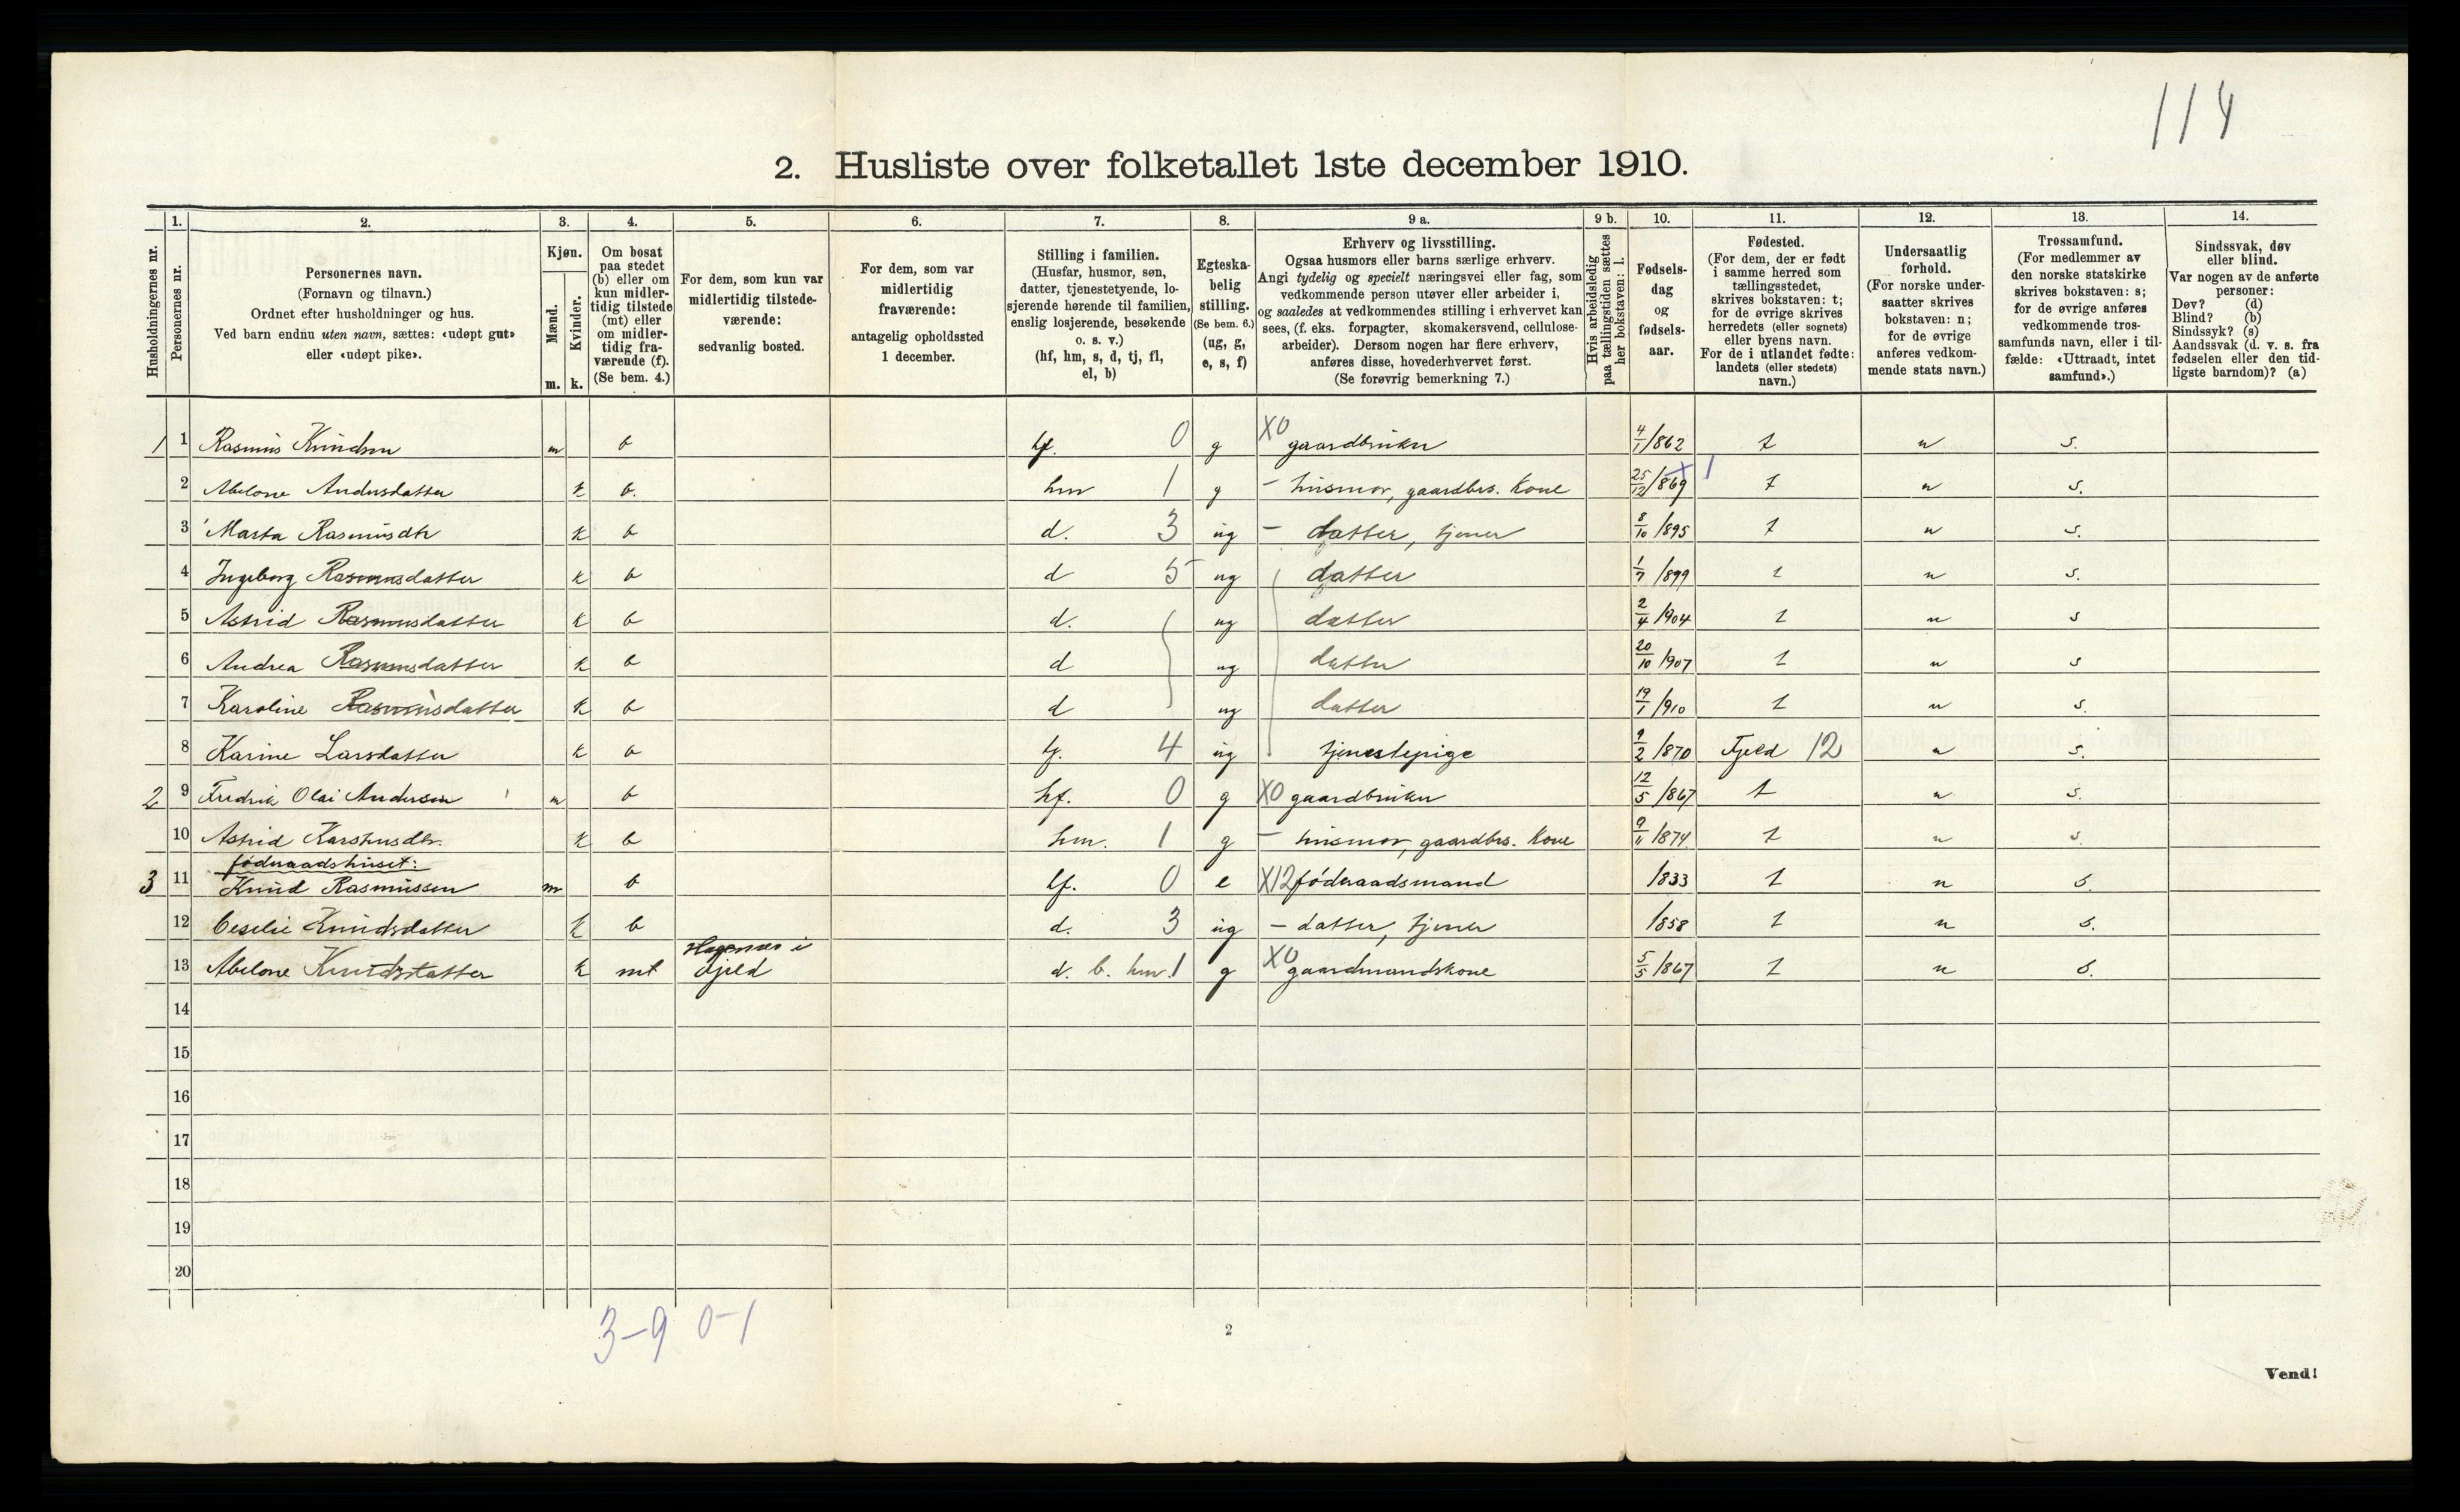 114
2. Husliste over folketallet 1ste december 1910.
Husholdningernes nr.
1. Personernes nr.
2. Personernes navn.
(Fornavn og tilnavn.)
Ordnet efter husholdninger og hus.
Ved barn endnu uten navn, sættes: «udøpt gut»
eller «udøpt pike».
3. Kjøn.
Mænd. m.
Kvinder. k.
4. Om bosat
paa stedet
(b) eller om
kun midler-
tidig tilstede
(mt) eller
om midler-
tidig fra-
værende (f).
(Se bem. 4.)
5. For dem, som kun var
midlertidig tilstede-
værende:
sedvanlig bosted.
6. For dem, som var
midlertidig
fraværende:
antagelig opholdssted
1 december.
7. Stilling i familien.
(Husfar, husmor, søn,
datter, tjenestetyende, lo-
sjerende hørende til familien,
enslig losjerende, besøkende
o. s. v.)
(hf, hm, s, d, tj, fl,
el, b)
8. Egteska-
belig
stilling.
(Se bem. 6.)
(ug, g,
e, s, f)
9 a. Erhverv og livsstilling.
Ogsaa husmors eller barns særlige erhverv.
Angi tydelig og specielt næringsvei eller fag, som
vedkommende person utøver eller arbeider i,
og saaledes at vedkommendes stilling i erhvervet kan
sees, (f. eks. forpagter, skomakersvend, cellulose-
arbeider). Dersom nogen har flere erhverv,
anføres disse, hovederhvervet først.
(Se forøvrig bemerkning 7.)
9 b. Hvis arbeidsledig
paa tællingstiden sættes
her bokstaven: l.
10. Fødsels-
dag
og
fødsels-
aar.
11. Fødested.
(For dem, der er født
i samme herred som
tællingsstedet,
skrives bokstaven: t;
for de øvrige skrives
herredets (eller sognets)
eller byens navn.
For de i utlandet fødte:
landets (eller stedets)
navn.)
12. Undersaatlig
forhold.
(For norske under-
saatter skrives
bokstaven: n;
for de øvrige
anføres vedkom-
mende stats navn.)
13. Trossamfund.
(For medlemmer av
den norske statskirke
skrives bokstaven: s;
for de øvrige anføres
vedkommende tros-
samfunds navn, eller i til-
fælde: «Uttraadt, intet
samfund».)
14. Sindssvak, døv
eller blind.
Var nogen av de anførte
personer:
Døv? (d)
Blind? (b)
Sindssyk? (s)
Aandssvak (d. v. s. fra
fødselen eller den tid-
ligste barndom)? (a)
1 1 Rasmus Knudsen m b hf. 0 g X0 gaardbruker 4/1/862 t n s.
2 Abelone Andersdatter k b. hm 1 g - husmor, gaardbrs. kone 25/12/869 t n s.
3 Marta Rasmusdtr k b d. 3 ug - datter, tjener 8/10/895 t n s.
4 Ingeborg Rasmusdatter k b d 5 ug datter 1/7/899 t n s.
5 Astrid Rasmusdatter k b d. ug datter 2/4/904 t n s
6 Andrea Rasmusdatter k b d ug datter 20/10/907 t n s
7 Karoline Rasmusdatter k b d ug datter 19/1/910 t n s.
8 Karine Larsdatter k b tj. 4 ug tjenestepige 9/2/870 Fjeld 12 n s.
2 9 Fredrik Olai Andersen m b hf. 0 g X0 gaardbruker 12/5/867 t n s.
10 Astrid Karsthusdtr. k b hm. 1 g - husmor, gaardbrs. kone 9/11/874 t n s.
føderaadshuset:
3 11 Knud Rasmussen m b hf. 0 e X12 føderaadsmand /833 t n s.
12 Ceselie Knudsdatter k b d. 3 ug - datter, tjener /858 t n s.
13 Abelone Knudsdatter k mt i Fjeld d. b. hm. 1 g X0 gaardmandskone 5/5/867 t n s.
14
15
16
17
18
19
20
3-9 0-1
2
Vend!